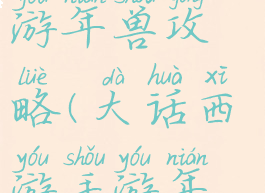 yóu nián shòu gōng
游年兽攻
lüè dà huà xī
略(大话西
yóu shǒu yóu nián
游手游年